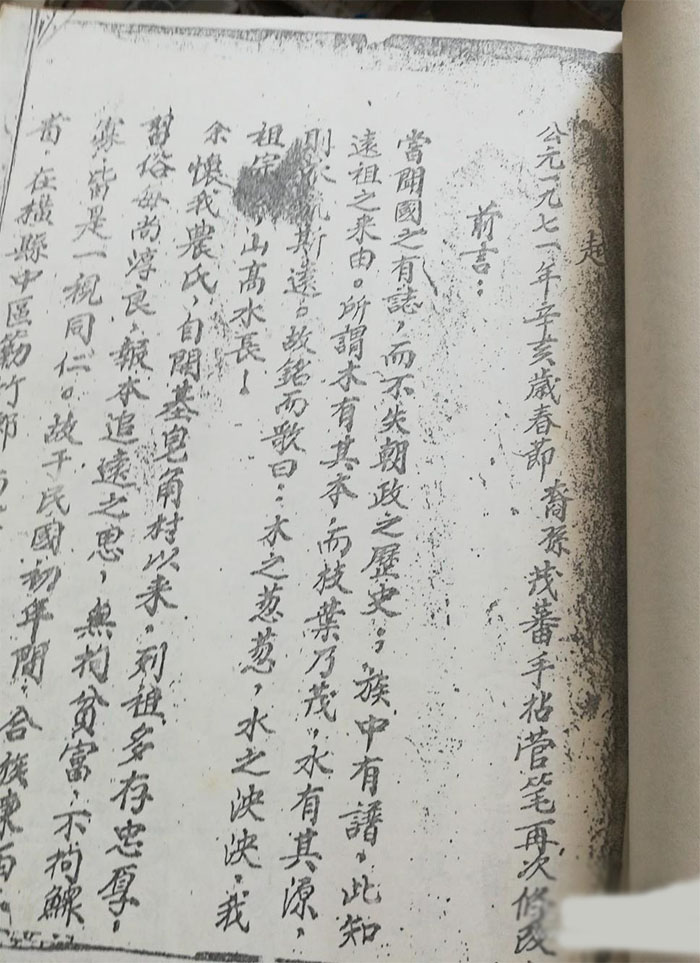 越
公元一九七一年辛亥歲春節 裔孫茂蕃手拈管笔再次修改
前言：
當開國之有誌，而不失朝政之歷史；族中有譜，此知
遠祖之来由。所謂木有其本，而枝葉乃茂，水有其源，
則流斯遠。故銘而歌曰：木之葱葱，水之泱泱，我
祖宗山高水長！
余懷我農氏，自開基皂角村以来。列祖多存忠厚，
習俗每尚淳良，報本追遠之思，無拘貧富，不拘鰥
寡，皆是一視同仁。故于民國初年間，合族東西
在橫縣中區簕竹